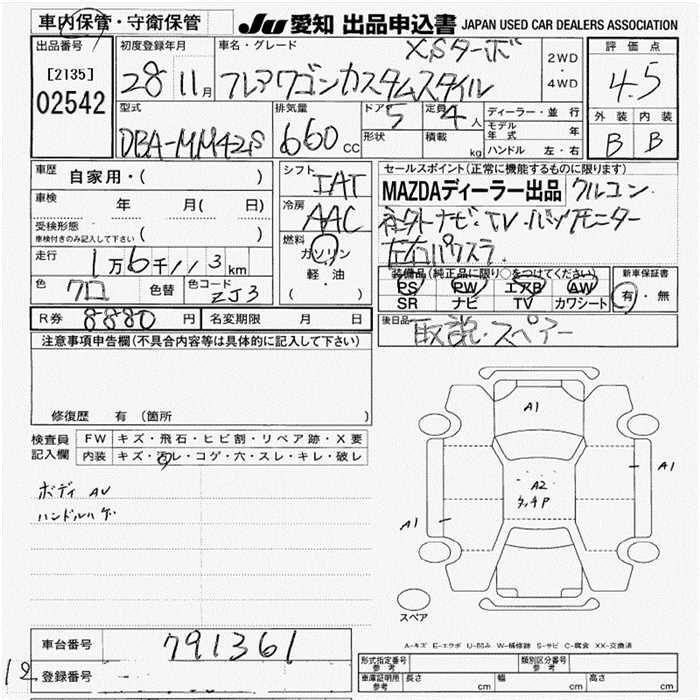 車内保管・守衛保管
JU 愛知 出品申込書 JAPAN USED CAR DEALERS ASSOCIATION
出品番号
[2135]
02542
初度登録年月
28 11月
車名・グレード
XSターボ
フレアワゴンカスタムスタイル
2WD
・
4WD
評価点
4.5
外装 内装
B B
型式
DBA-MM42S
排気量
660cc
ドア 5
形状
定員 4人
積載 kg
ディーラー・並行
モデル年式 年
ハンドル 左・右
車歴 自家用・( )
車検 年 月( 日)
受検形態
車検付きのみ記入して下さい ( )
走行 1万6千113km
色 クロ 色替 色コード ZJ3
シフト IAT
冷房 AAC
燃料 ガソリン
軽・油
( )
セールスポイント(正常に機能するものに限ります)
MAZDAディーラー出品 クルコン
社外ナビ・TV・バックモニター
左右パワスラ
装備品(純正品に限り○をつけてください)
PS PW エアB AW
SR ナビ TV カワシート
新車保証書
有・無
R券 8880円 名変期限 月 日
後日品 取説・スペアー
注意事項申告欄(不具合内容等は具体的に記入して下さい)
修復歴 有(箇所 )
検査員記入欄
FW キズ・飛石・ヒビ割・リペア跡・X要
内装 キズ・汚レ・コゲ・穴・スレ・キレ・破レ
ボディ AU
ハンドルハゲ
A1
A1
A2
タッチP
A1
スペア
A-キズ E-エクボ U-凹み W-補修跡 S-サビ C-腐食 XX-交換済
車台番号 791361
12
登録番号
形式指定番号 参考
類別区分番号 参考
車庫証明用 参考 長さ cm 幅 cm 高さ cm